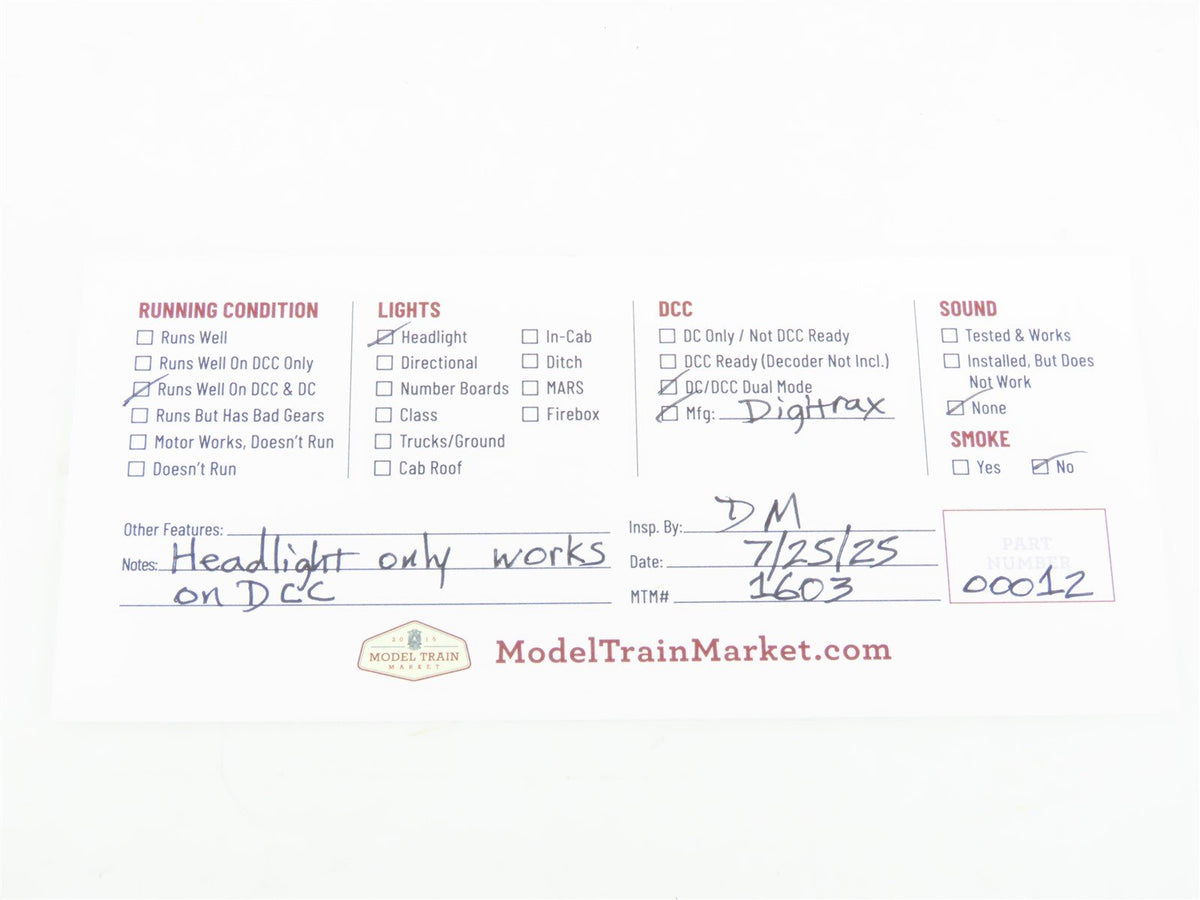 RUNNING CONDITION
Runs Well
Runs Well On DCC Only
Runs Well On DCC & DC
Runs But Has Bad Gears
Motor Works, Doesn't Run
Doesn't Run
LIGHTS
Headlight
Directional
Number Boards
Class
Trucks/Ground
Cab Roof
In-Cab
Ditch
MARS
Firebox
DCC
DC Only / Not DCC Ready
DCC Ready (Decoder Not Incl.)
DC/DCC Dual Mode
Mfg: Digitrax
SOUND
Tested & Works
Installed, But Does
Not Work
None
SMOKE
Yes No
Other Features:
Notes: Headlight only works
on DCC
Insp. By: DM
Date: 7/25/25
MTM# 1603
PART
NUMBER
00012
2015
MODEL TRAIN
MARKET
ModelTrainMarket.com